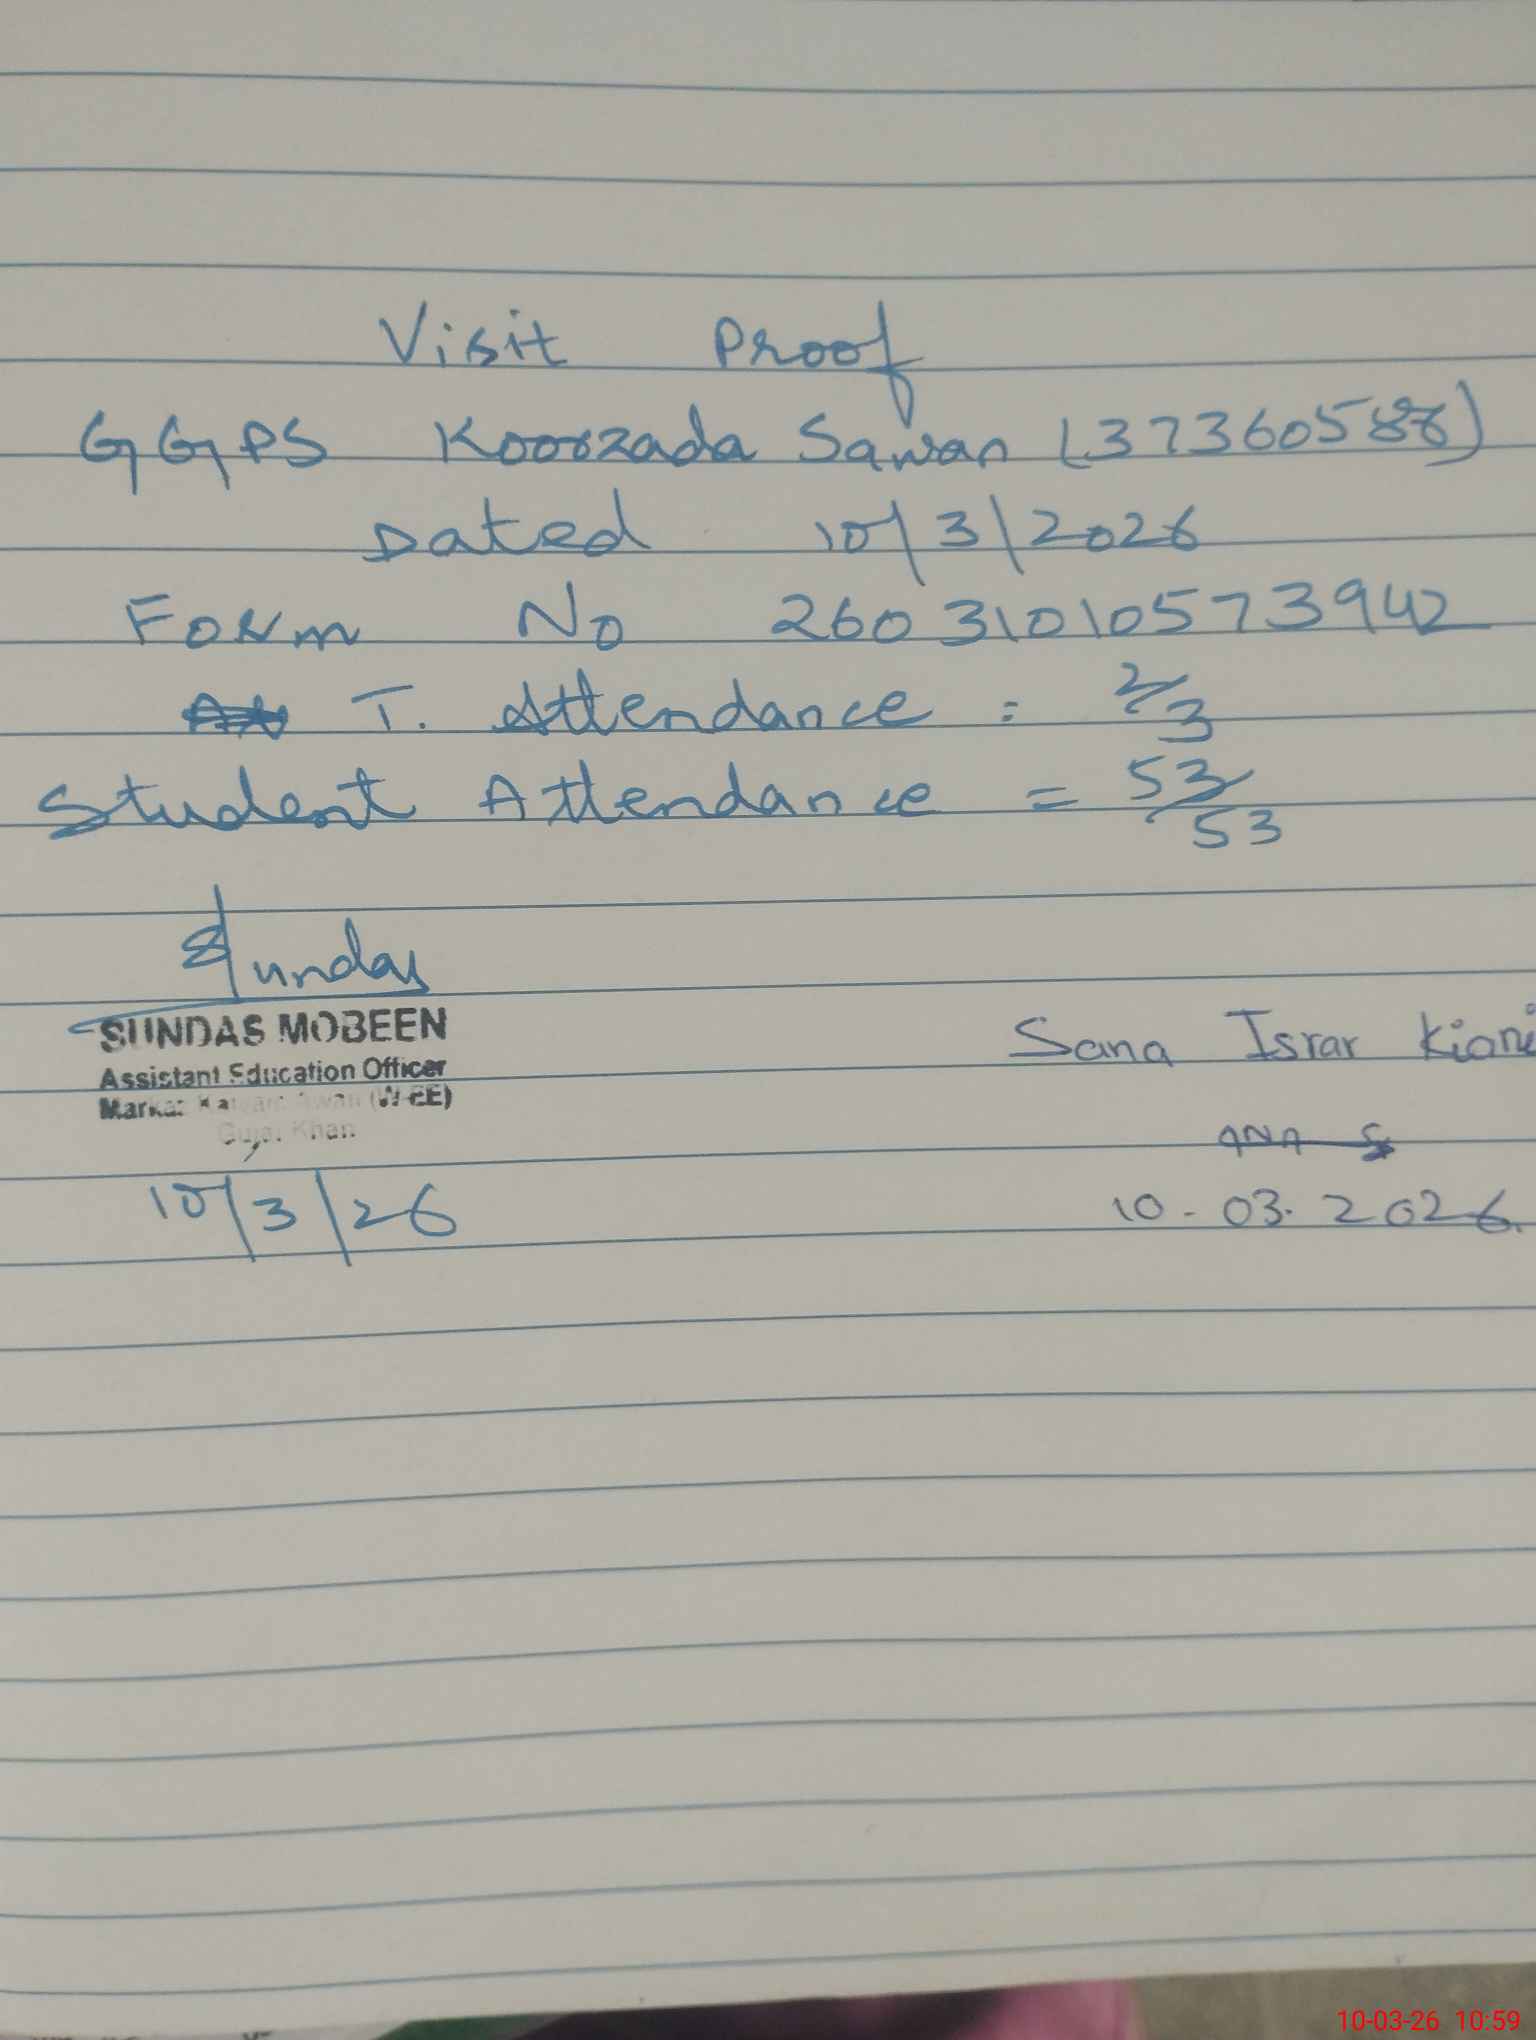 Visit Proof
GGPS Koorzada Sawan (37360588)
Dated 10/3/2026
Form No 26031010573942
T. Attendance = 2/3
Student Attendance = 53/53
Sundas
SUNDAS MOBEEN
Assistant Education Officer
Markaz (W-EE)
Gujar Khan
10/3/26
Sana Israr Kiani
10-03-2026.
10-03-26 10:59